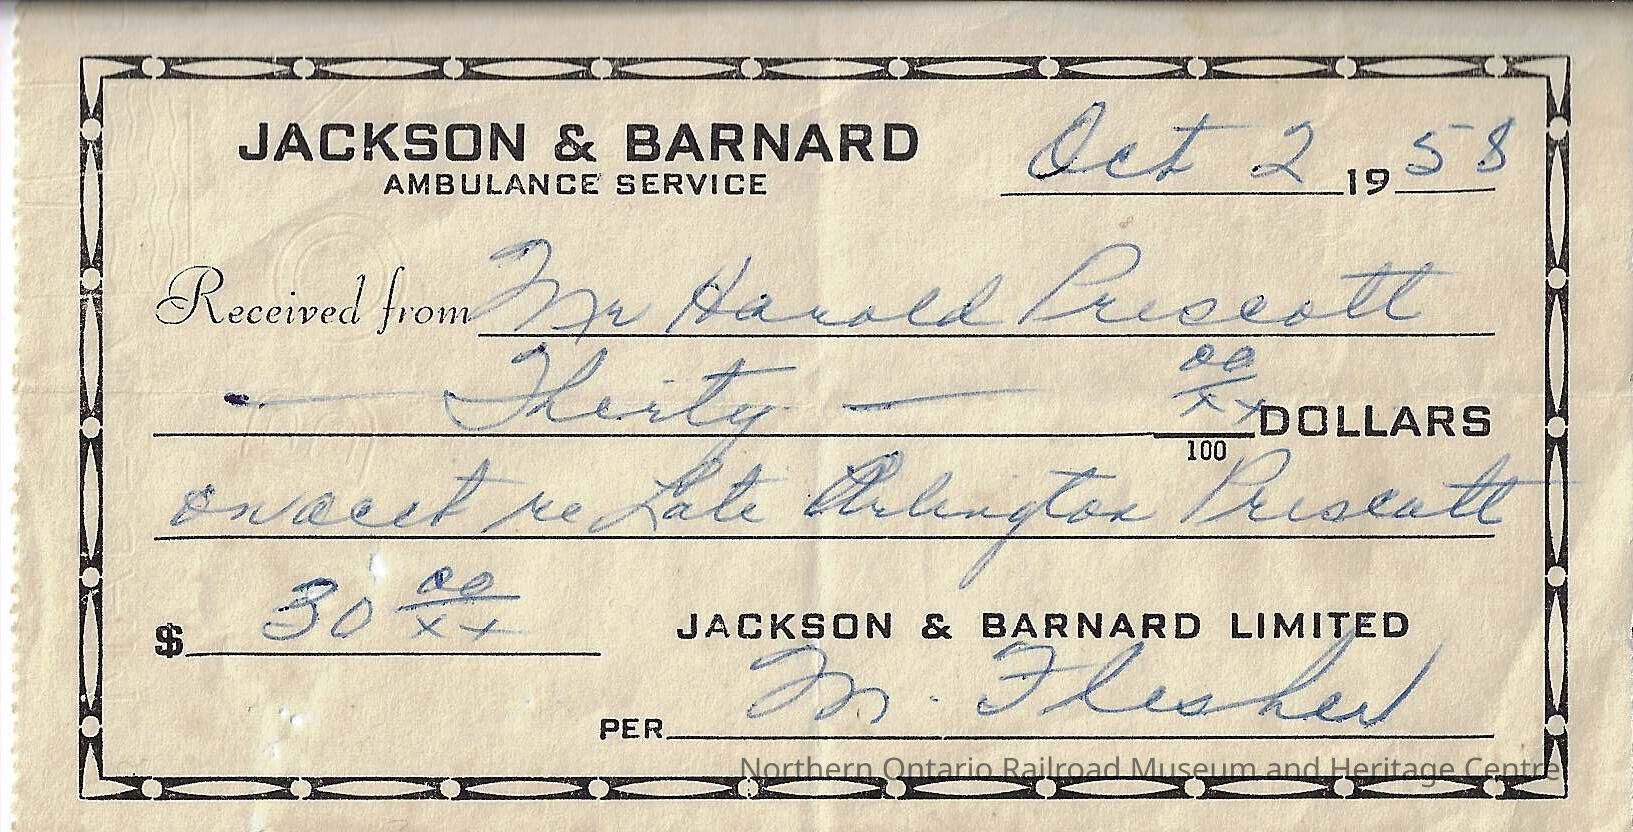 JACKSON & BARNARD
AMBULANCE SERVICE
Oct 2 1958
Received from Mr Harold Prescott
— Thirty — 00/xx /100 DOLLARS
on acct re Late Arlington Prescott
$ 30 00/xx
JACKSON & BARNARD LIMITED
PER M. Flesher
Northern Ontario Railroad Museum and Heritage Centre